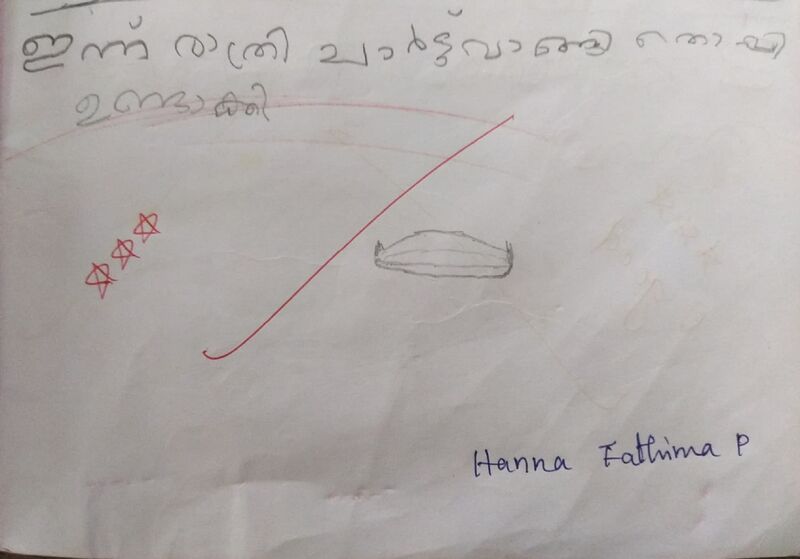 ഇന്ന് രാത്രി ചാർട്ട് വാങ്ങി തൊപ്പി
ഉണ്ടാക്കി
Hanna Fathima P